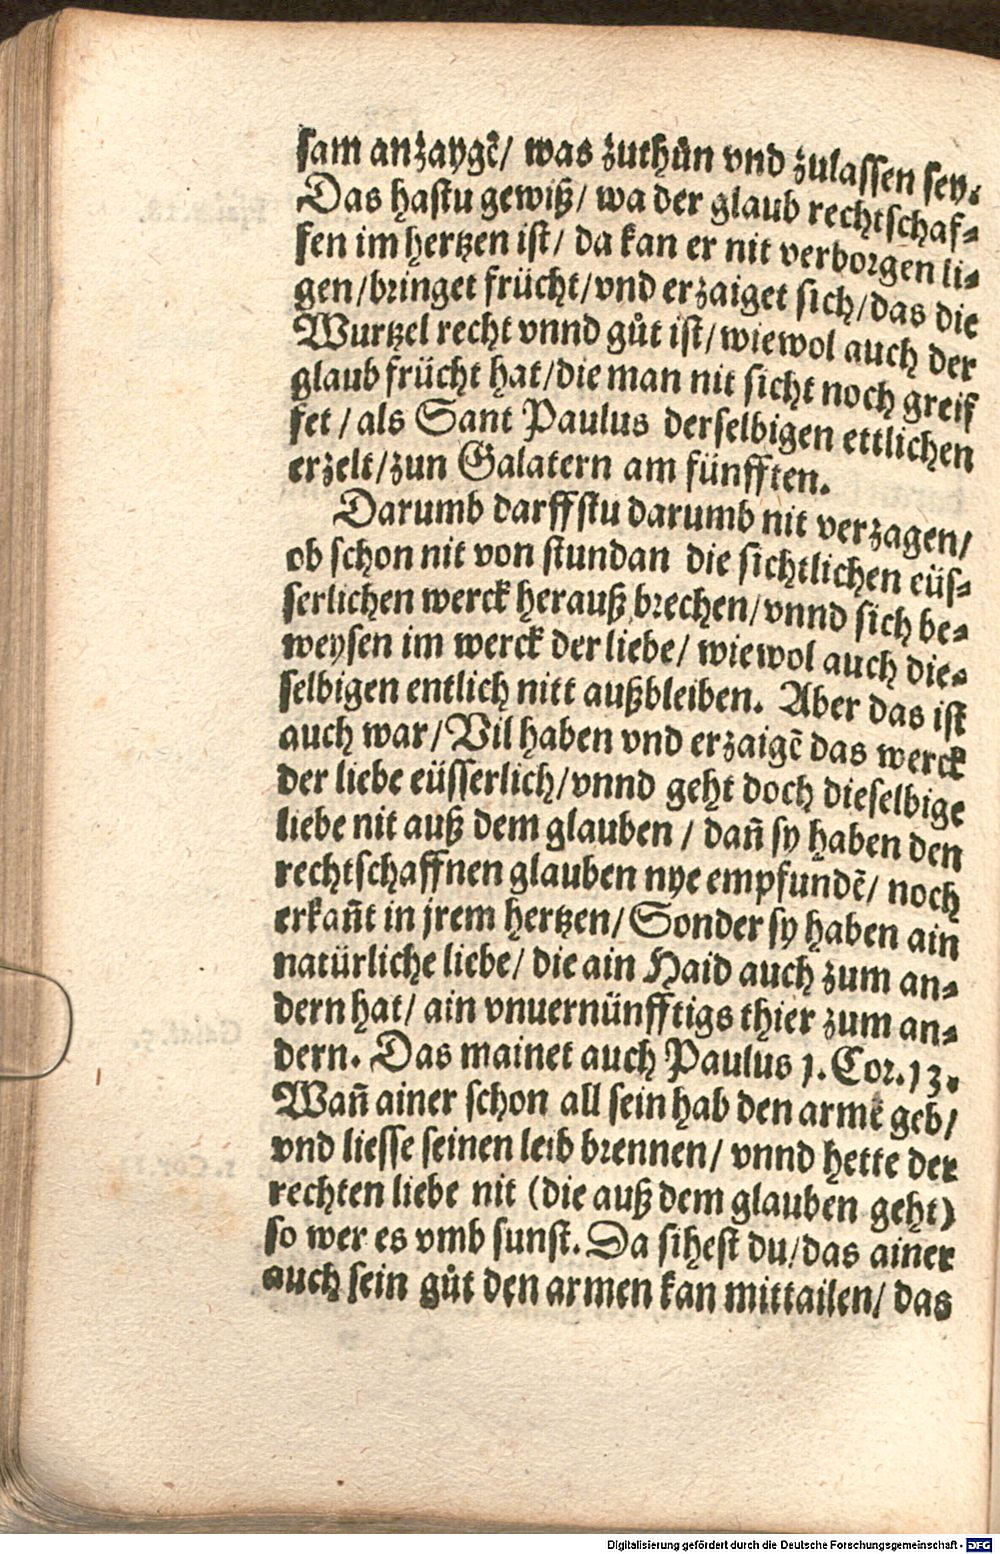 sam anzaygē/ was zuthůn vnd zulassen sey.
Das hastu gewiß/ wa der glaub rechtschaf⸗
fen im hertzen ist/ da kan er nit verborgen li⸗
gen/bringet frücht/vnd erzaiget sich/das die
Wurtzel recht vnnd gůt ist/wiewol auch der
glaub frücht hat/die man nit sicht noch greif
fet/als Sant Paulus derselbigen ettlichen
erzelt/zun Galatern am fünfften.
Darumb darffstu darumb nit verzagen/
ob schon nit von stundan die sichtlichen eüs⸗
serlichen werck herauß brechen/vnnd sich be⸗
weysen im werck der liebe/ wiewol auch die⸗
selbigen entlich nitt außbleiben. Aber das ist
auch war/Vil haben vnd erzaigē das werck
der liebe eüsserlich/vnnd geht doch dieselbige
liebe nit auß dem glauben/ dañ sy haben den
rechtschaffnen glauben nye empfundē/ noch
erkañt in jrem hertzen/Sonder sy haben ain
natürliche liebe/ die ain Haid auch zum an⸗
dern hat/ ain vnuernünfftigs thier zum an⸗
dern. Das mainet auch Paulus 1. Cor. 13.
Wañ ainer schon all sein hab den armē geb/
vnd liesse seinen leib brennen/ vnnd hette der
rechten liebe nit (die auß dem glauben geht)
so wer es vmb sunst. Da sihest du/das ainer
auch sein gůt den armen kan mittailen/ das
Digitalisierung gefördert durch die Deutsche Forschungsgemeinschaft - DFG